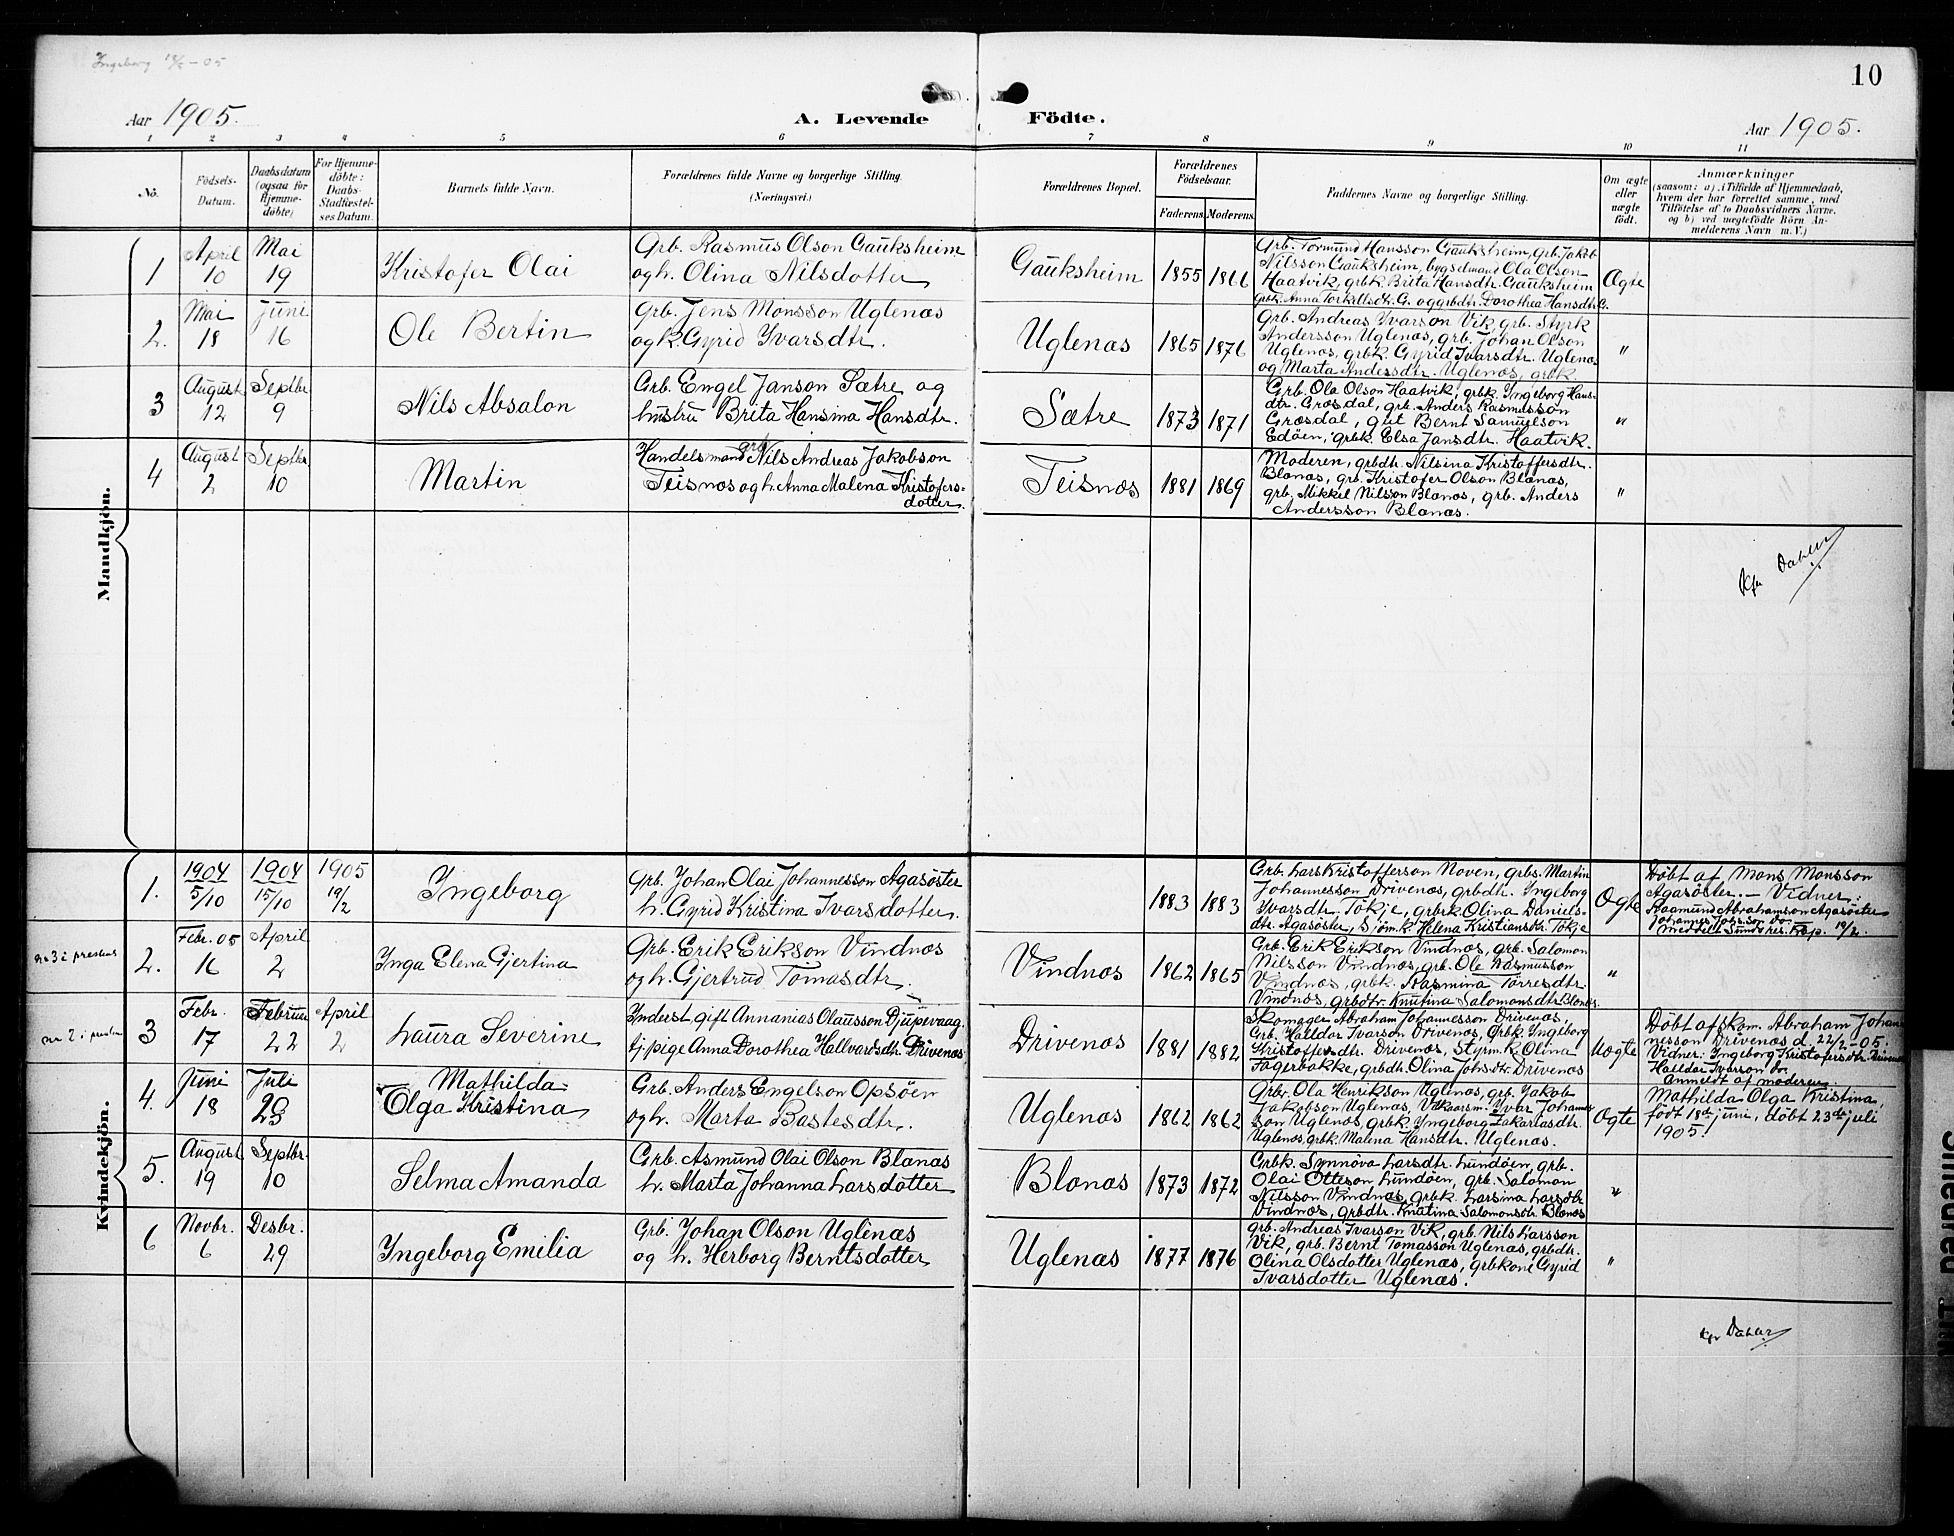 Ingeborg 19/2 - 05
10
Aar 1905.
A. Levende Födte.
Aar 1905.
1 2 3 4 5 6 7 8 9 10 11
No.
Födsels-Datum.
Daabsdatum (ogsaa for Hjemme-döbte)
For Hjemme-döbte: Daabs-Stadfæstel-ses Datum.
Barnets fulde Navn.
Forældrenes fulde Navne og borgerlige Stilling. (Næringsvei.)
Forældrenes Bopæl.
Forældrenes Födselsaar.
Faderens Moderens
Faddernes Navne og borgerlige Stilling.
Om ægte eller uægte födt.
Anmærkninger
(saasom: a) i Tilfælde af Hjemmedaab, hvem der har forrettet samme, med Tilföielse af to Daabsvidners Navne, og b) ved uægtefödte Börn An-melderens Navn m. V.)
Mandkjön.
1
April 10
Mai 19
Kristofer Olai
Grb. Rasmus Olson Gauksheim
og h. Olina Nilsdotter
Gauksheim
1855 1866
Grb. Tormund Hansson Gauksheim, grb. Jakob
Nilsson Gauksheim, bygselmand Ola Olson
Haatvik, grbk. Brita Hansdtr. Gauksheim
grbk. Anna Torkillsdtr. G. og grbdtr. Dorothea Hansdtr. G.
Ægte
2.
Mai 18
Juni 16
Ole Bertin
Grb. Jens Monsson Uglenæs
og k. Gyrid Ivarsdtr.
Uglenæs
1865 1876
Grb. Andreas Ivarson Vik, grb. Styrk
Andersson Uglenæs, grb. Johan Olson
Uglenæs, grbk. Gyrid Ivarsdtr. Uglenæs
og Marta Andersdtr. Uglenæs, grbk
"
3
August 12
Septbr. 9
Nils Absalon
Grb. Engel Janson Sætre og
hustru Brita Hansina Hansdtr.
Sætre
1873 1871
Grb. Ola Olson Haatvik, grbk. Ingeborg Hans-
dtr. Græsdal, grb. Anders Rasmusson
Græsdal, gut Bernt Samuelson
Edöen, grbk. Elsa Jansdtr. Haatvik.
"
4
August 2
Septbr. 10
Martin
Handelsmand grb Nils Andreas Jakobson
Teisnæs og h. Anna Malena Kristofers-
dotter.
Teisnæs
1881 1869
Moderen, grbdtr. Nilsina Kristoffersdtr.
Blænæs, grb. Kristofer Olson Blænæs,
grb. Mikkel Nilsson Blænæs, grb. Anders
Andersson Blænæs.
"
Kfr Dahler
Kvindekjön.
1.
1904 5/10
1904 15/10
1905 19/2
Ingeborg
Grb. Johan Olai Johannesson Agasöster
h. Gyrid Kristina Ivarsdotter.
1883 1883
Grb. Lars Kristofferson Noven, grbs. Martin
Johannesson Drivenæs, grbdtr. Ingeborg
Ivarsdtr. Tökje, grbrk. Olina Daniels-
dtr. Agasöster, sjömk. Helena Kristiansdtr. Tökje
Ægte
Döbt af Mons Monsson
Agasöster. - Vidner:
Rasmund Abrahamson Agasöster
19/2.
nr 3 i prestens
2.
Febr. 05 16
April 2
Inga Elena Gjertina
Grb. Erik Erikson Vindnæs
og h. Gjertrud Tomasdtr.
Vindnæs
1862 1865
Grb. Erik Erikson Vindnæs, grb. Salomon
Nilsson Vindnæs, grb. Ole Rasmusson
Vindnæs, grbk. Rasmina Torresdtr
Vindnæs, grbdtr. Knutina Salomonsdtr Blænæs.
"
nr 2 i presten
3
Febr. 17
Februar 22
April 2
Laura Severine
Inderst, gift Annanias Olausson Djupevaag.
tj. pige Anna Dorothea Hallvardsdtr. Drivenæs
Drivenæs
1881 1882
Skomager Abraham Johannesson Drivenæs,
Grb. Halldor Ivarson Drivenæs, Grbk Ingeborg
Kristoffersdtr. Drivenæs, Styrm.k. Olina
Fagerbakke, grbdtr. Olina Johsdtr. Drivenæs
Uægte
Döbt af skom. Abraham Johan
nesson Drivenæs d. 22/2-05.
Vidner: Ingeborg Kristofersdtr. Drivenæs
Halldor Ivarson do.
Anmeldt af moderen
4.
Juni 18
Juli 23
Mathilda
Olga Kristina
Grb. Anders Engelson Opsöen
og h. Marta Bastesdtr.
Uglenæs
1862 1862
Grbr. Ola Henrikson Uglenæs, grb. Jakob
Jakobson Uglenæs, Vilkaarsm. Ivar Johannes
son Uglenæs, grbk. Ingeborg Zakariasdtr.
Uglenæs, grbk. Malena Hansdtr. Uglenæs.
Ægte
Mathilda Olga Kristina
födt 18de juni, döbt 23de juli
1905.
5.
August 19
Septbr. 10
Selma Amanda
Grb. Asmund Olai Olson Blænæs
h. Marta Johanna Larsdotter
Blænæs
1873 1872
Grbk. Synnöva Larsdtr. Lundöen, grb.
Olai Otteson Lundöen, grb. Salomon
Nilsson Vindnæs, grbk. Larsina Larsdtr
Vindnæs, grbdtr. Knutina Salomonsdtr. Blænæs
"
6
Novbr. 6
Desbr. 29
Ingeborg Emilia
Grb. Johan Olson Uglenæs
og h. Herborg Berntsdotter
Uglenæs
1877 1876
grb. Andreas Ivarson Vik, grb. Nils Larsson
Vik, grb. Bernt Tomasson Uglenæs, grbdtr.
Olina Olsdotter Uglenæs, grbkone Gyrid
Ivarsdotter Uglenæs.
"
Kfr Dahler